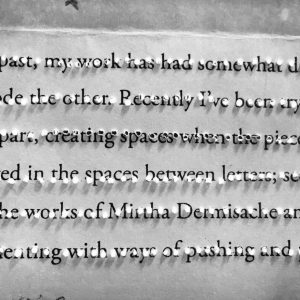 past, my work has had somewhat d
ode the other. Recently I've been try
part, creating spaces when the piece
ed in the spaces between letters; se
he works of Mirtha Dermisache an
menting with ways of pushing and